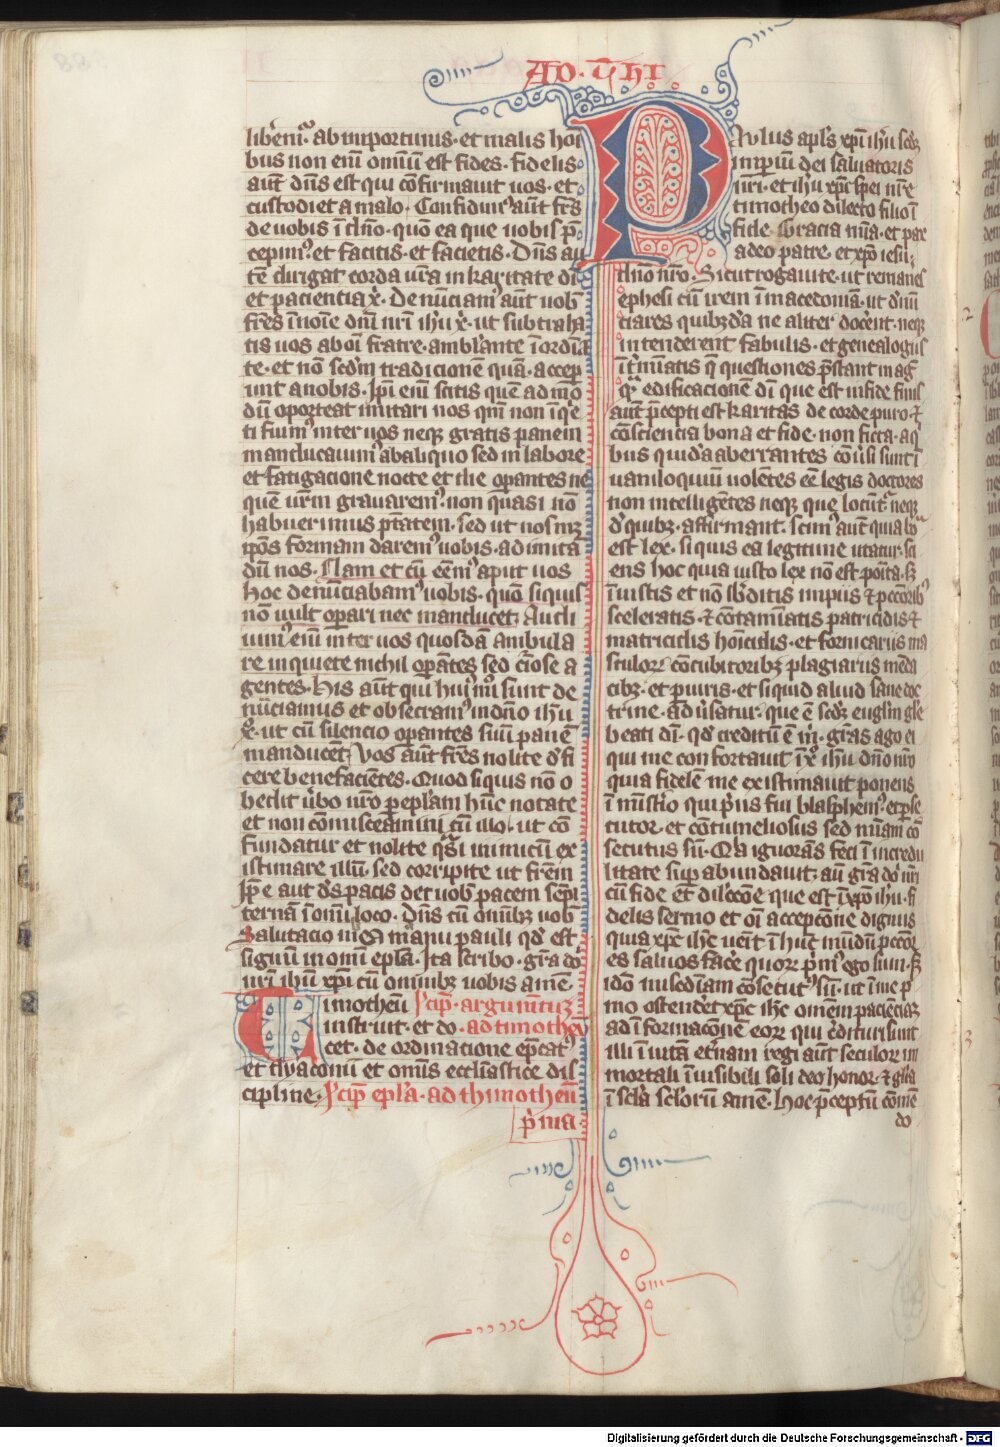 AD · THI
liberem᷑ · ab inportunis · et malis hoī
bus non enī omniū est fides · fidelis
aut̄ dn̄s est qui cōfirmauit uos · et
custodiet a malo · Confidim᷒ aut̄ frēs
de uobis ī dn̄o · quō ea que uobis p̄
cepim᷒ · et facitis · et facietis · Dn̄s au
tē dirigat corda ur̄a in karitate dī
et pacientia x̄ · De nūciam᷒ aut̄ uob̄
frēs ī noīe dn̄i nr̄i ih̄u x̄ · ut subtraha
tis uos ab oī fratre · ambl̓ante īordīa
te · et nō scd̓m tradicionē quā · accep̄
unt a nobis · Ip̄i enī scitis quē ad mo
dū oporteat imitari nos qm̄ non īq̓e
ti fuim᷒ inter uos neq̄ gratis panem
manducauim᷒ ab aliquo sed in labore
et fatigacione nocte et die op̄antes ne
quē ur̄m grauarem᷒ · non quasi nō
habuerimus p̄tatem · sed ut nosmꝫ
ip̄os formam darem᷒ uobis · ad imita
dū nos · Nam et cū eēm᷒ aput uos
hoc denūciabam᷒ uobis · quō siquis
nō uult op̄ari nec manducet · Audi
uim᷒ enī inter uos quosdā ambula
re inquiete nichil op̄antes sed c̓iose a
gentes · His aut̄ qui hui᷒ mōi sunt de
nūciamus et obsecram᷒ in dn̄o ih̄u
x̄ · ut cū silencio op̄antes suū panē
manducēt · Vos aut̄ frēs nolite d̓fi
cere benefaciētes · Quod siquis nō o
bedit u̓bo nr̄o p̄ epl̄am hūc notate
et non cōmisceamini cū illo · ut cō
fundatur et nolite qᷓsi inimicū ex
istimare illū · sed corripite ut fr̄em
Ip̄e aut̄ ds̄ pacis det uob̄ pacem sēpi
ternā ī omī loco · Dn̄s cū omībꝫ uob̄
Salutacio mea manu pauli qd̓ est
signū in omī epl̄a · Ita scribo · gr̄a dn̄i
nr̄i ih̄u xp̄i cū omnibꝫ uobis amē ·
Timotheū Īcip̄ · argumētuꝫ
instruit · et do · ad timotheū
cet · de ordinacione ep̄cat᷒
et dyaconū et omīs eccl̄iastice dis
cipline · Īcip̄ epl̄a · ad thimotheū
p̓ma ·
PAulus apl̄s xp̄i ih̄u scd̓ꝫ
imp̓iū dei saluatoris
nr̄i · et ih̄u xp̄c spei nr̄e
timotheo dilecto filio ī
fide Gracia mīa · et pax
a deo patre · et xp̄o iesu ·
dn̄o nr̄o · Sicut rogaui te · ut remanes
ephesi cū irem ī macedoniā · ut d̓nū
ciares quibꝫdā ne aliter docēnt · neqꝫ
intenderent fabulis · et genealogiis
īt̓minatis q̄ questiones p̄stant mag̓
qᷓ edificacionē dī que est in fide finis
aut̄ p̄cepti est karitas de corde puro ⁊
cōsciencia bona et fide · non ficta · a q̓
bus quidā aberrantes cōu̓si sunt ī
uaniloquiū uolētes eē legis doctores
non intelligētes neqꝫ que locūt᷑ neqꝫ
d̓ quibꝫ · affirmant · scim᷒ aut̄ quia bo
est lex · si quis ea legitime utatur · sci
ens hoc quia iusto lex nō est poīta · sꝫ
īiustis et nō sb̓ditis impiis ⁊ pctōribꝫ
sceleratis · ⁊ cōtamīatis patricidis ⁊
matricidis hoīcidis · et fornicariis ma
sculoꝝ cōcubitoribꝫ plagiariis mēda
cibꝫ · et p̓iuris · et siquid aliud sane doc
trine · ad u̓satur · que ē scd̓ꝫ eugl̄m gl̄e
beati dī · qd̓ creditū ē m̓ · gr̄as ago ei
qui me confortauit ī x̄o ih̄u dn̄o nr̄o
quia fidelē me existimauit ponens
ī mist̓io qui p̓us fui blasphem᷒ et p̄se
cutor · et cōtumeliosus sed mīam cō
secutus sū · Q̄a ignorās feci ī incredu
litate sup̄ abundauit · aut̄ gr̄a dn̄i nr̄i
cū fide et dilcōe que est ī xp̄o ih̄u · fi
delis sermo et oī accepcōne dignus
quia xp̄c ih̄c uēit ī hūc mūdū pctōr
es saluos fac̄e quoꝝ p̓m᷒ ego sum · sꝫ
idō misc̓diam cōsecut᷒ sū · ut ī me p̓
mo ostend̓et xp̄c ih̄c omēm paciēciā
ad īformacōnē eoꝝ qui c̓dituri sunt
illi ī uitā et̓nam regi aut̄ seculoꝝ im
mortali īuisibili soli deo honor · ⁊ gl̄ia
ī scl̄a scl̄orū amē · Hoc p̄ceptū cōmē
do
Digitalisierung gefördert durch die Deutsche Forschungsgemeinschaft - DFG